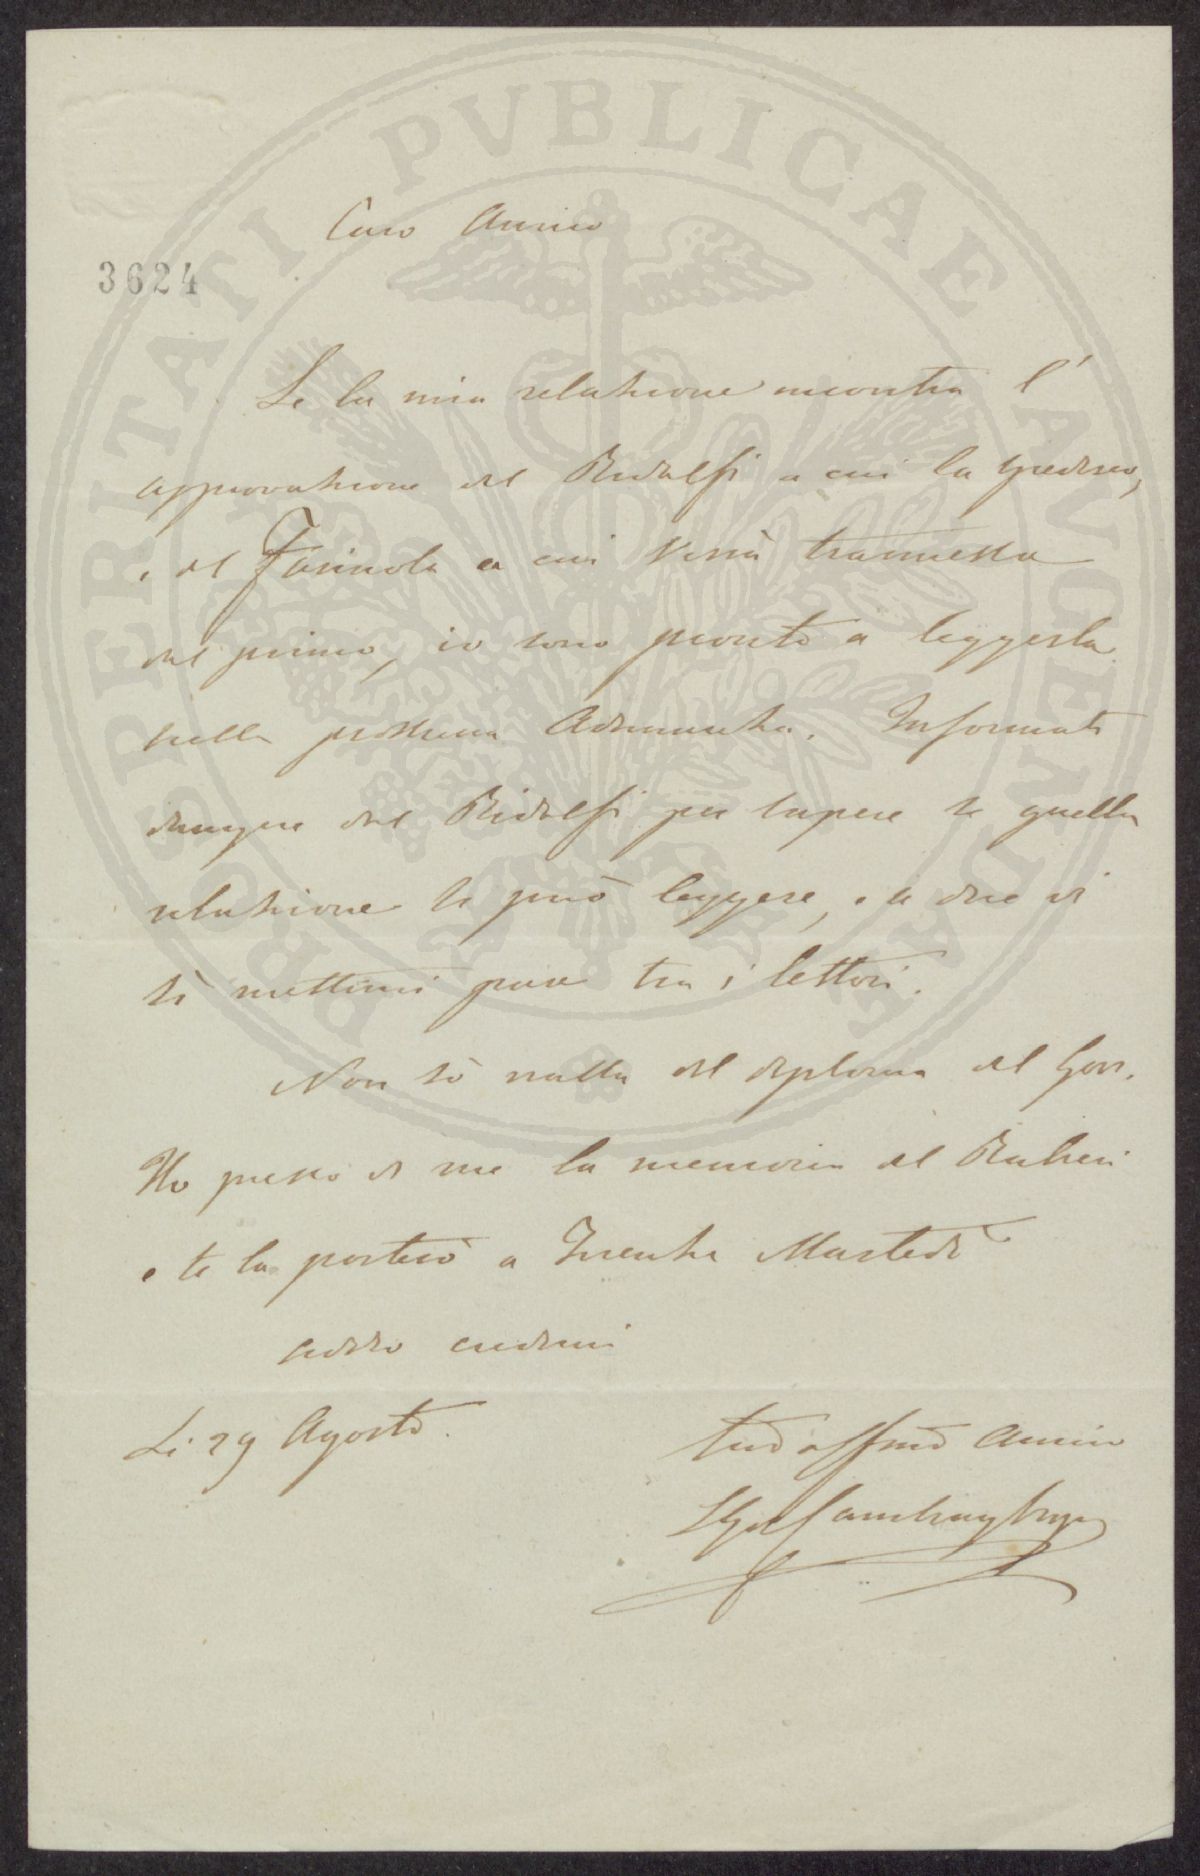 PROSPERITATI PVBLICAE AVGENDAE
Caro Amico
3624
Se la mia relazione incontra l'
approvazione del Ridolfi a cui la spedisco,
e del Farinola a cui verrà trasmessa
dal primo, io sono pronto a leggerla
nella prossima Adunanza. Informati
dunque dal Ridolfi per sapere se quella
relazione si può leggere, e se dice di
sì mettimi pure tra i lettori.
Non sò nulla del diploma del Gov.
Ho presso di me la memoria del Rubieri
e te la porterò a Firenze Martedì
addio credimi
Li 29 Agosto.
tuo affmo Amico
L Gui Cambray Digny